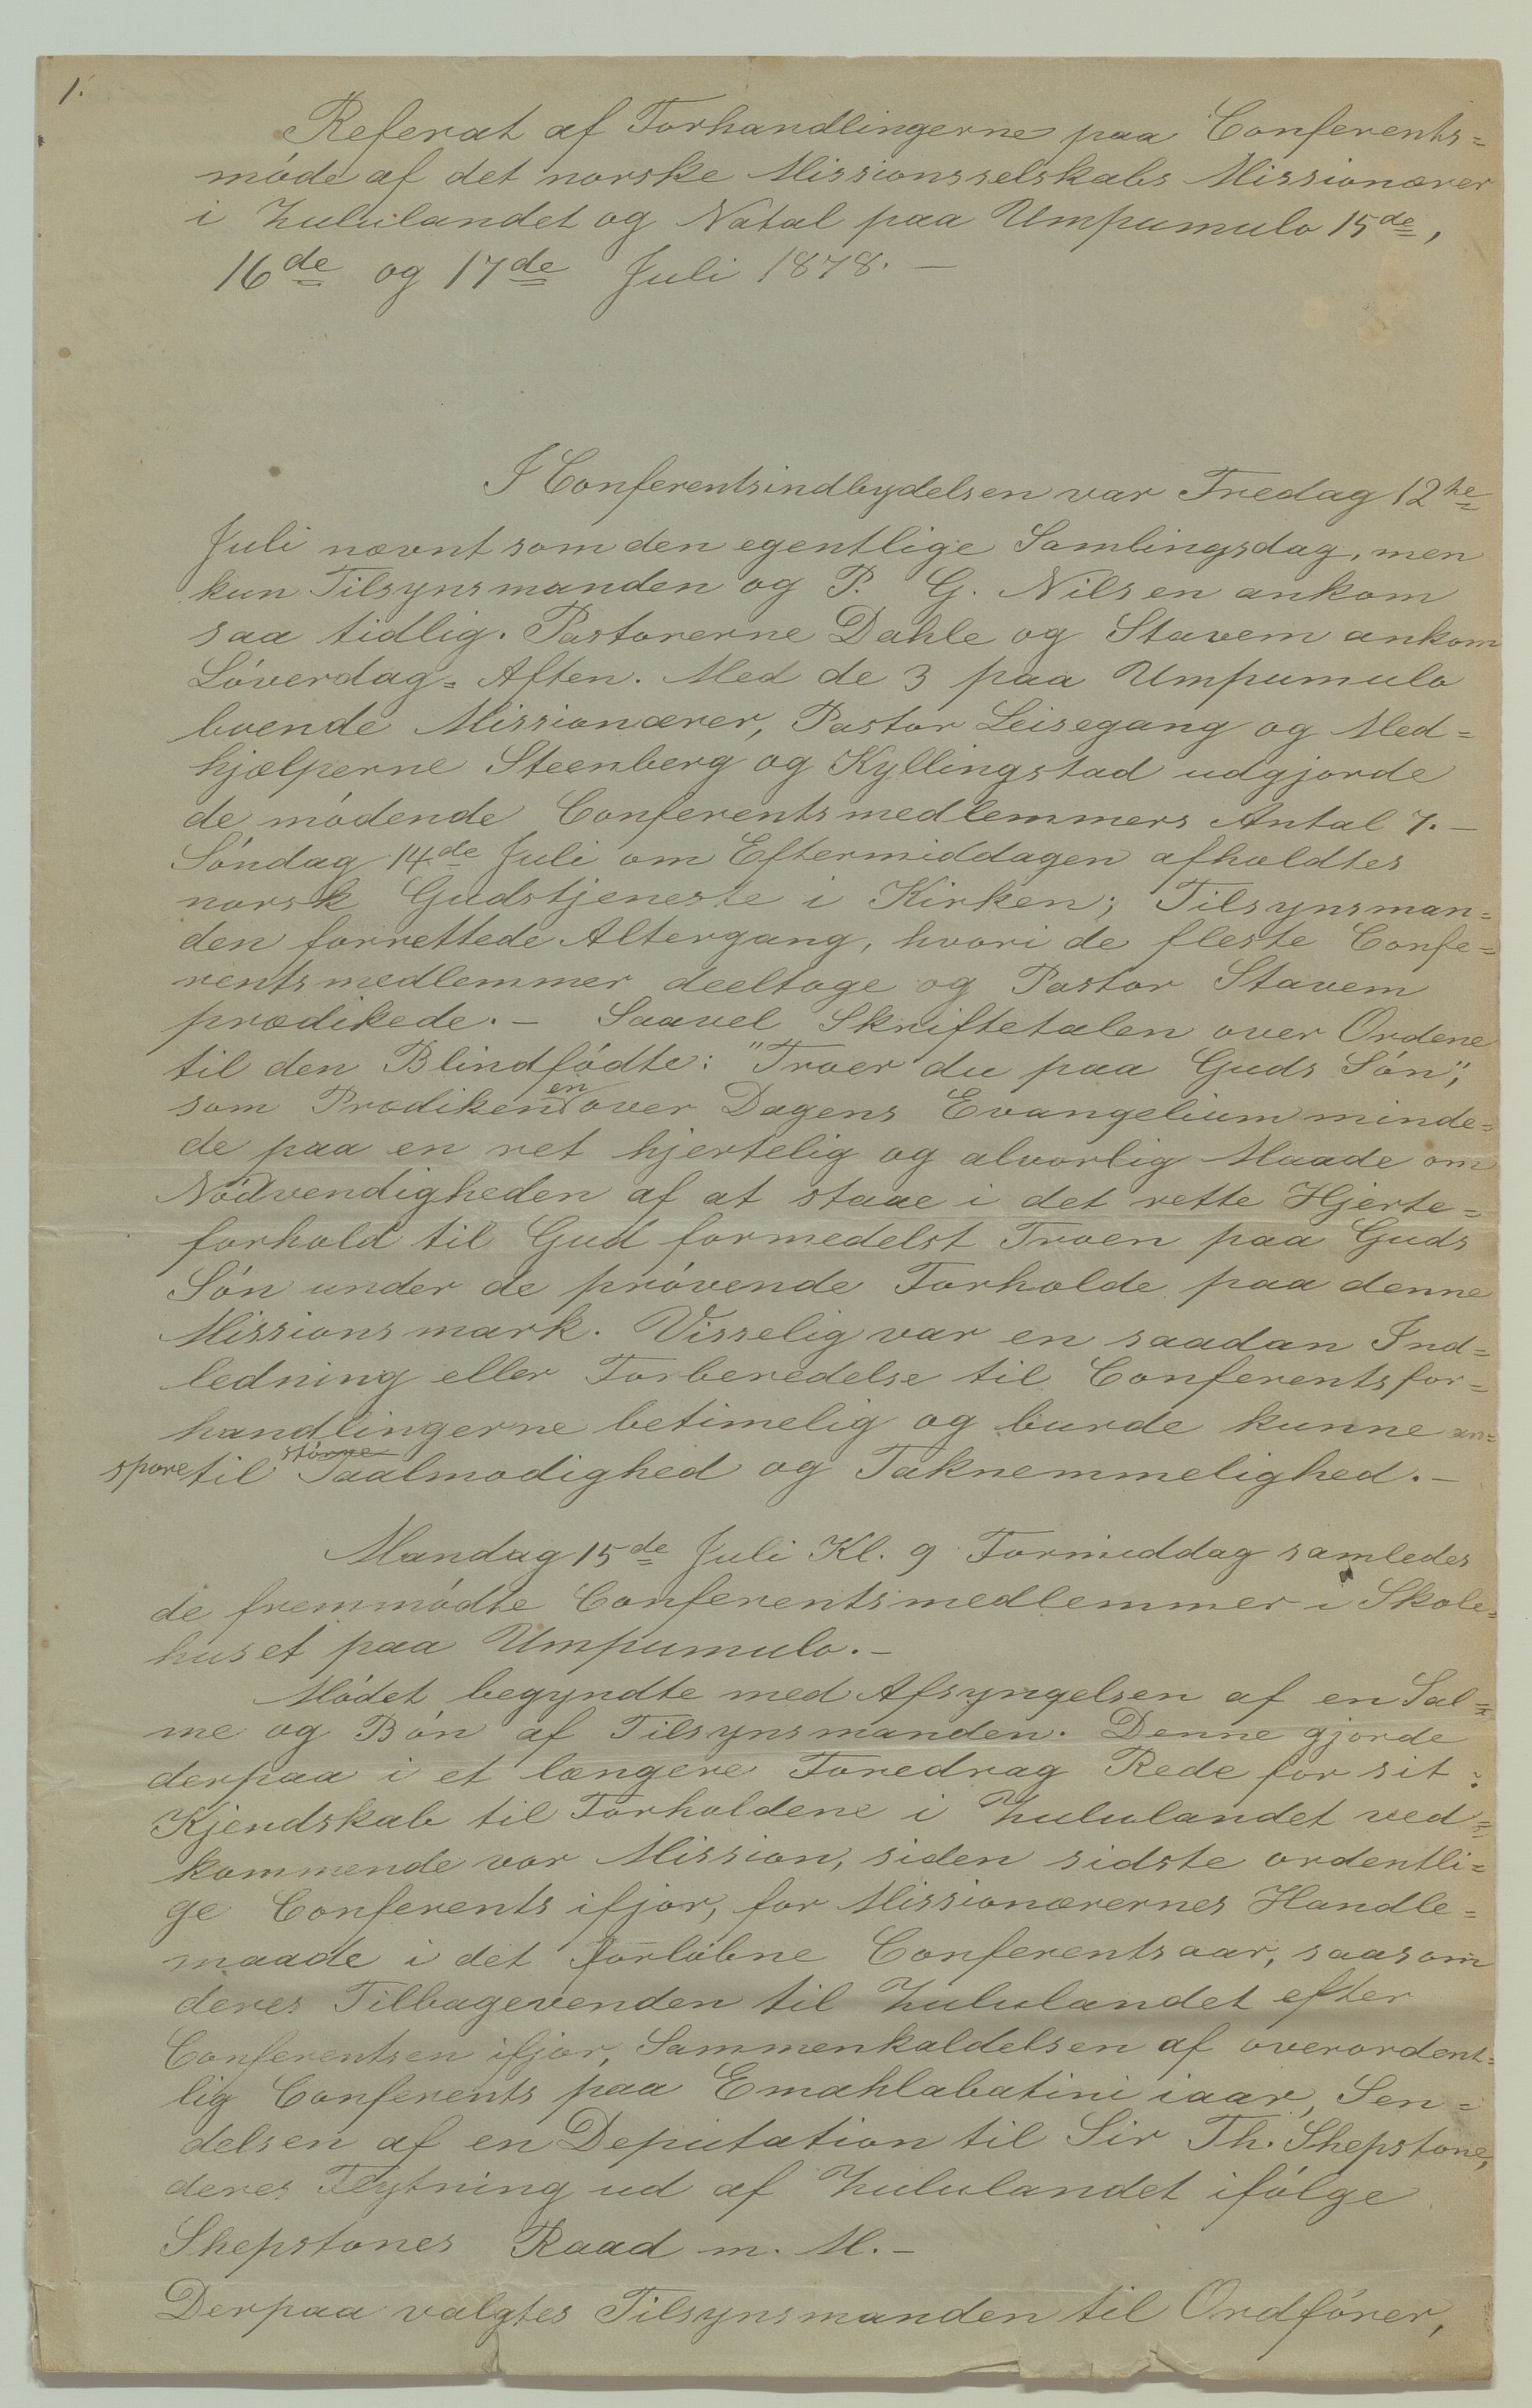 1.
Referat af Forhandlingerne paa Conferents=
møde af det norske Missionsselskabs Missionærer
i Zululandet og Natal paa Umpumulo 15de,
16de og 17de Juli 1878. —
I Conferentsindbydelsen var Fredag 12te
Juli nævnt som den egentlige Samlingsdag, men
kun Tilsynsmanden og P. G. Nilsen ankom
saa tidlig. Pastorerne Dahle og Stavem ankom
Løverdag=Aften. Med de 3 paa Umpumulo
boende Missionærer, Pastor Leisegang og Med=
hjælperne Steenberg og Kyllingstad udgjorde
de mødende Conferentsmedlemmers Antal 7. —
Søndag 14de Juli om Eftermiddagen afholdtes
norsk Gudstjeneste i Kirken; Tilsynsman=
den forrettede Altergang, hvori de fleste Confe=
rentsmedlemmer deeltoge og Pastor Stavem
prædikede. — Saavel Skriftetalen over Ordene
til den Blindfødte: "Troer du paa Guds Søn",
som Prædikenen over Dagens Evangelium minde=
de paa en ret hjertelig og alvorlig Maade om
Nødvendigheden af at staae i det rette Hjerte=
forhold til Gud formedelst Troen paa Guds
Søn under de prøvende Forholde paa denne
Missionsmark. Visselig var en saadan Ind=
ledning eller Forberedelse til Conferentsfor=
handlingerne betimelig og burde kunne an=
spore til større Taalmodighed og Taknemmelighed. —
Mandag 15de Juli Kl. 9 Formiddag samledes
de fremmødte Conferentsmedlemmer i Skole=
huset paa Umpumulo. —
Mødet begyndte med Afsyngelsen af en Sal=
me og Bøn af Tilsynsmanden. Denne gjorde
derpaa i et længere Foredrag Rede for sit
Kjendskab til Forholdene i Zululandet ved=
kommende vor Mission, siden sidste ordentli=
ge Conferents ifjor, for Missionærernes Handle=
maade i det forløbne Conferentsaar, saasom
deres Tilbagevenden til Zululandet efter
Conferentsen ifjor, Sammenkaldelsen af overordent=
lig Conferents paa Emahlabatini iaar, Sen=
delsen af en Deputation til Sir Th. Shepstone,
deres Flytning ud af Zululandet ifølge
Shepstones Raad m. M. —
Derpaa valgtes Tilsynsmanden til Ordfører,